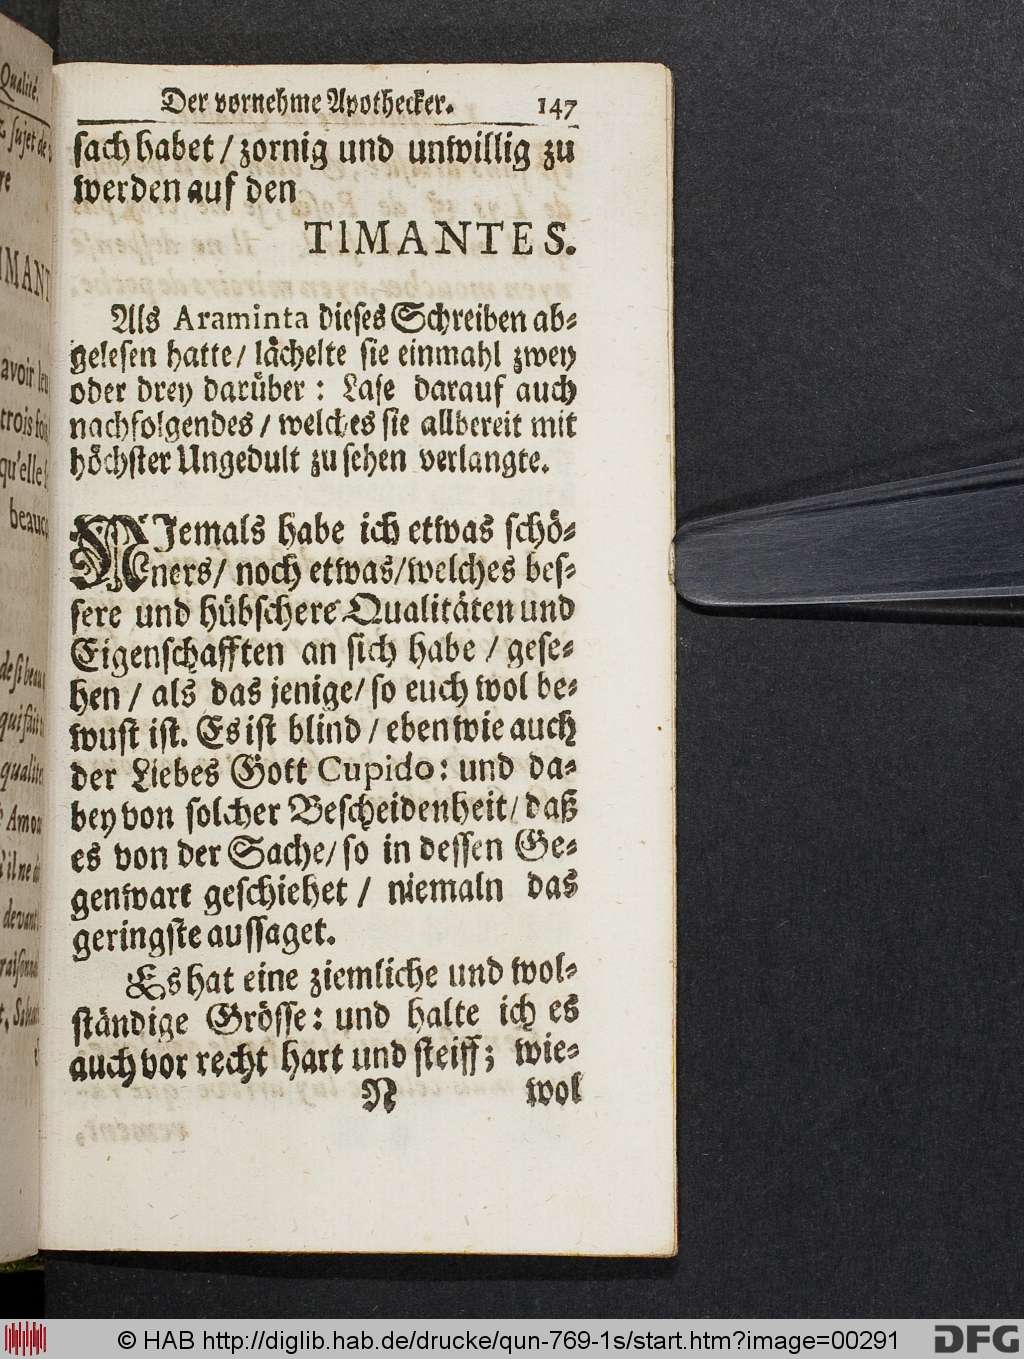 Qualité.
sujet de
re
IMANT
avoir leu
trois fois
qu'elle
beauco
de si beau
qui fait
qualite
Amou
il ne
devant
raisonn
Der vornehme Apothecker. 147
sach habet / zornig und unwillig zu
werden auf den
TIMANTES.
Als Araminta dieses Schreiben ab⸗
gelesen hatte / lächelte sie einmahl zwey
oder drey darüber : Lase darauf auch
nachfolgendes / welches sie allbereit mit
höchster Ungedult zu sehen verlangte.
NJemals habe ich etwas schö⸗
ners / noch etwas / welches bes⸗
sere und hübschere Qualitäten und
Eigenschafften an sich habe / gese⸗
hen / als das jenige / so euch wol be⸗
wust ist. Es ist blind / eben wie auch
der Liebes Gott Cupido : und da⸗
bey von solcher Bescheidenheit / daß
es von der Sache / so in dessen Ge⸗
genwart geschiehet / niemaln das
geringste aussaget.
Es hat eine ziemliche und wol⸗
ständige Grösse : und halte ich es
auch vor recht hart und steiff ; wie⸗
N wol
© HAB http://diglib.hab.de/drucke/qun-769-1s/start.htm?image=00291 DFG